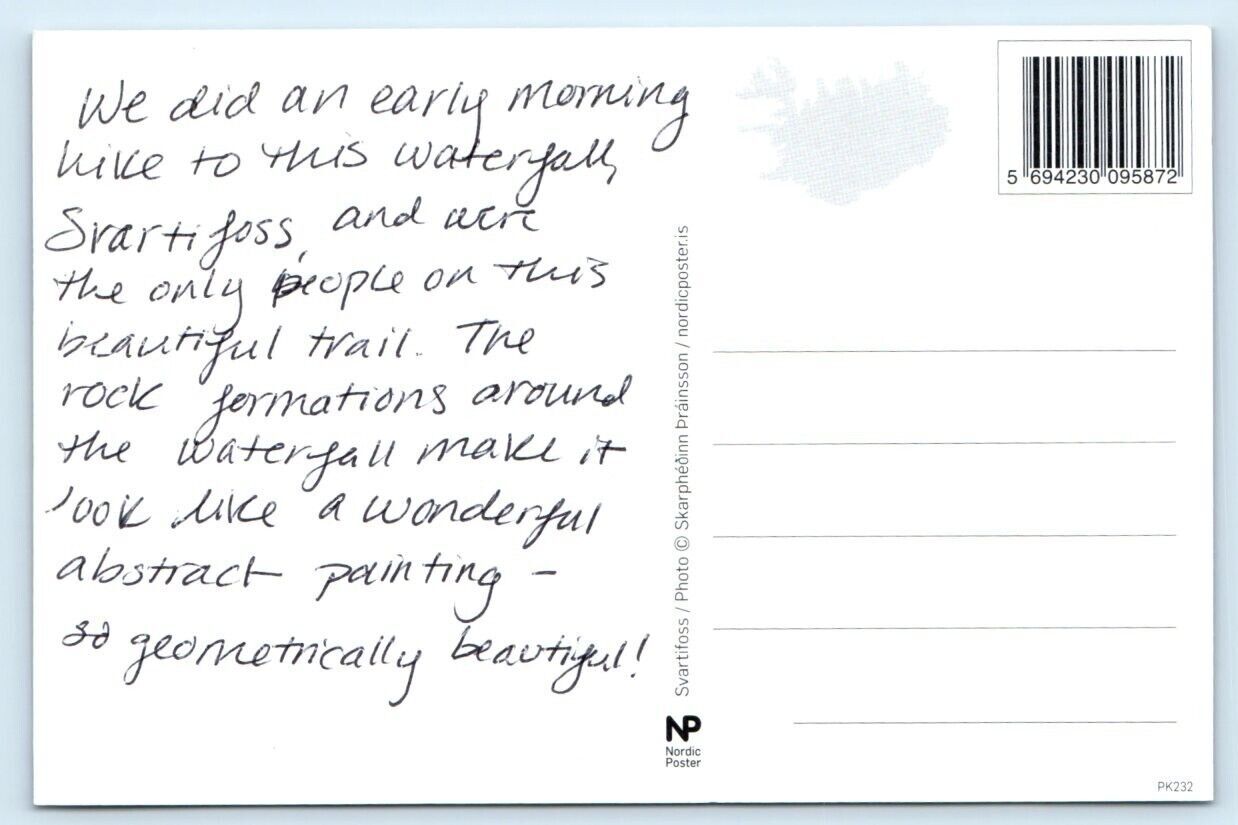 We did an early morning
hike to this waterfall,
Svartifoss, and were
the only people on this
beautiful trail. The
rock formations around
the waterfall make it
look like a wonderful
abstract painting -
so geometrically beautiful!
Svartifoss / Photo © Skarphéðinn Þráinsson / nordicposter.is
NP
Nordic
Poster
5 694230 095872
PK232